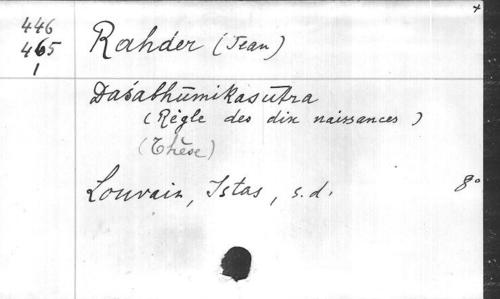 446
465
1
Rahder (Jean)
Daśabhūmikasūtra
(Règle des dix naissances)
(Thèse)
Louvain, Istas, s.d. 8°